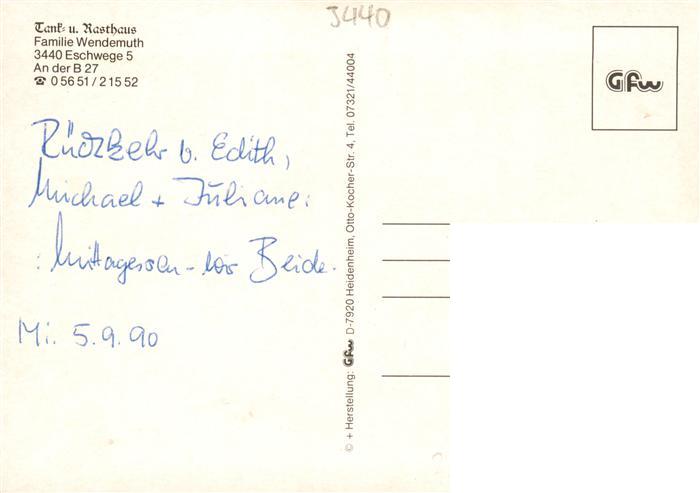 J440
Tank- u. Rasthaus
Familie Wendemuth
3440 Eschwege 5
An der B 27
☎ 0 56 51 / 2 15 52
Gfw
Rückkehr v. Edith,
Michael + Juliane:
: Mittagessen - wir Beide.
Mi. 5.9.90
© + Herstellung: Gfw D-7920 Heidenheim, Otto-Kocher-Str. 4, Tel. 07321/44004